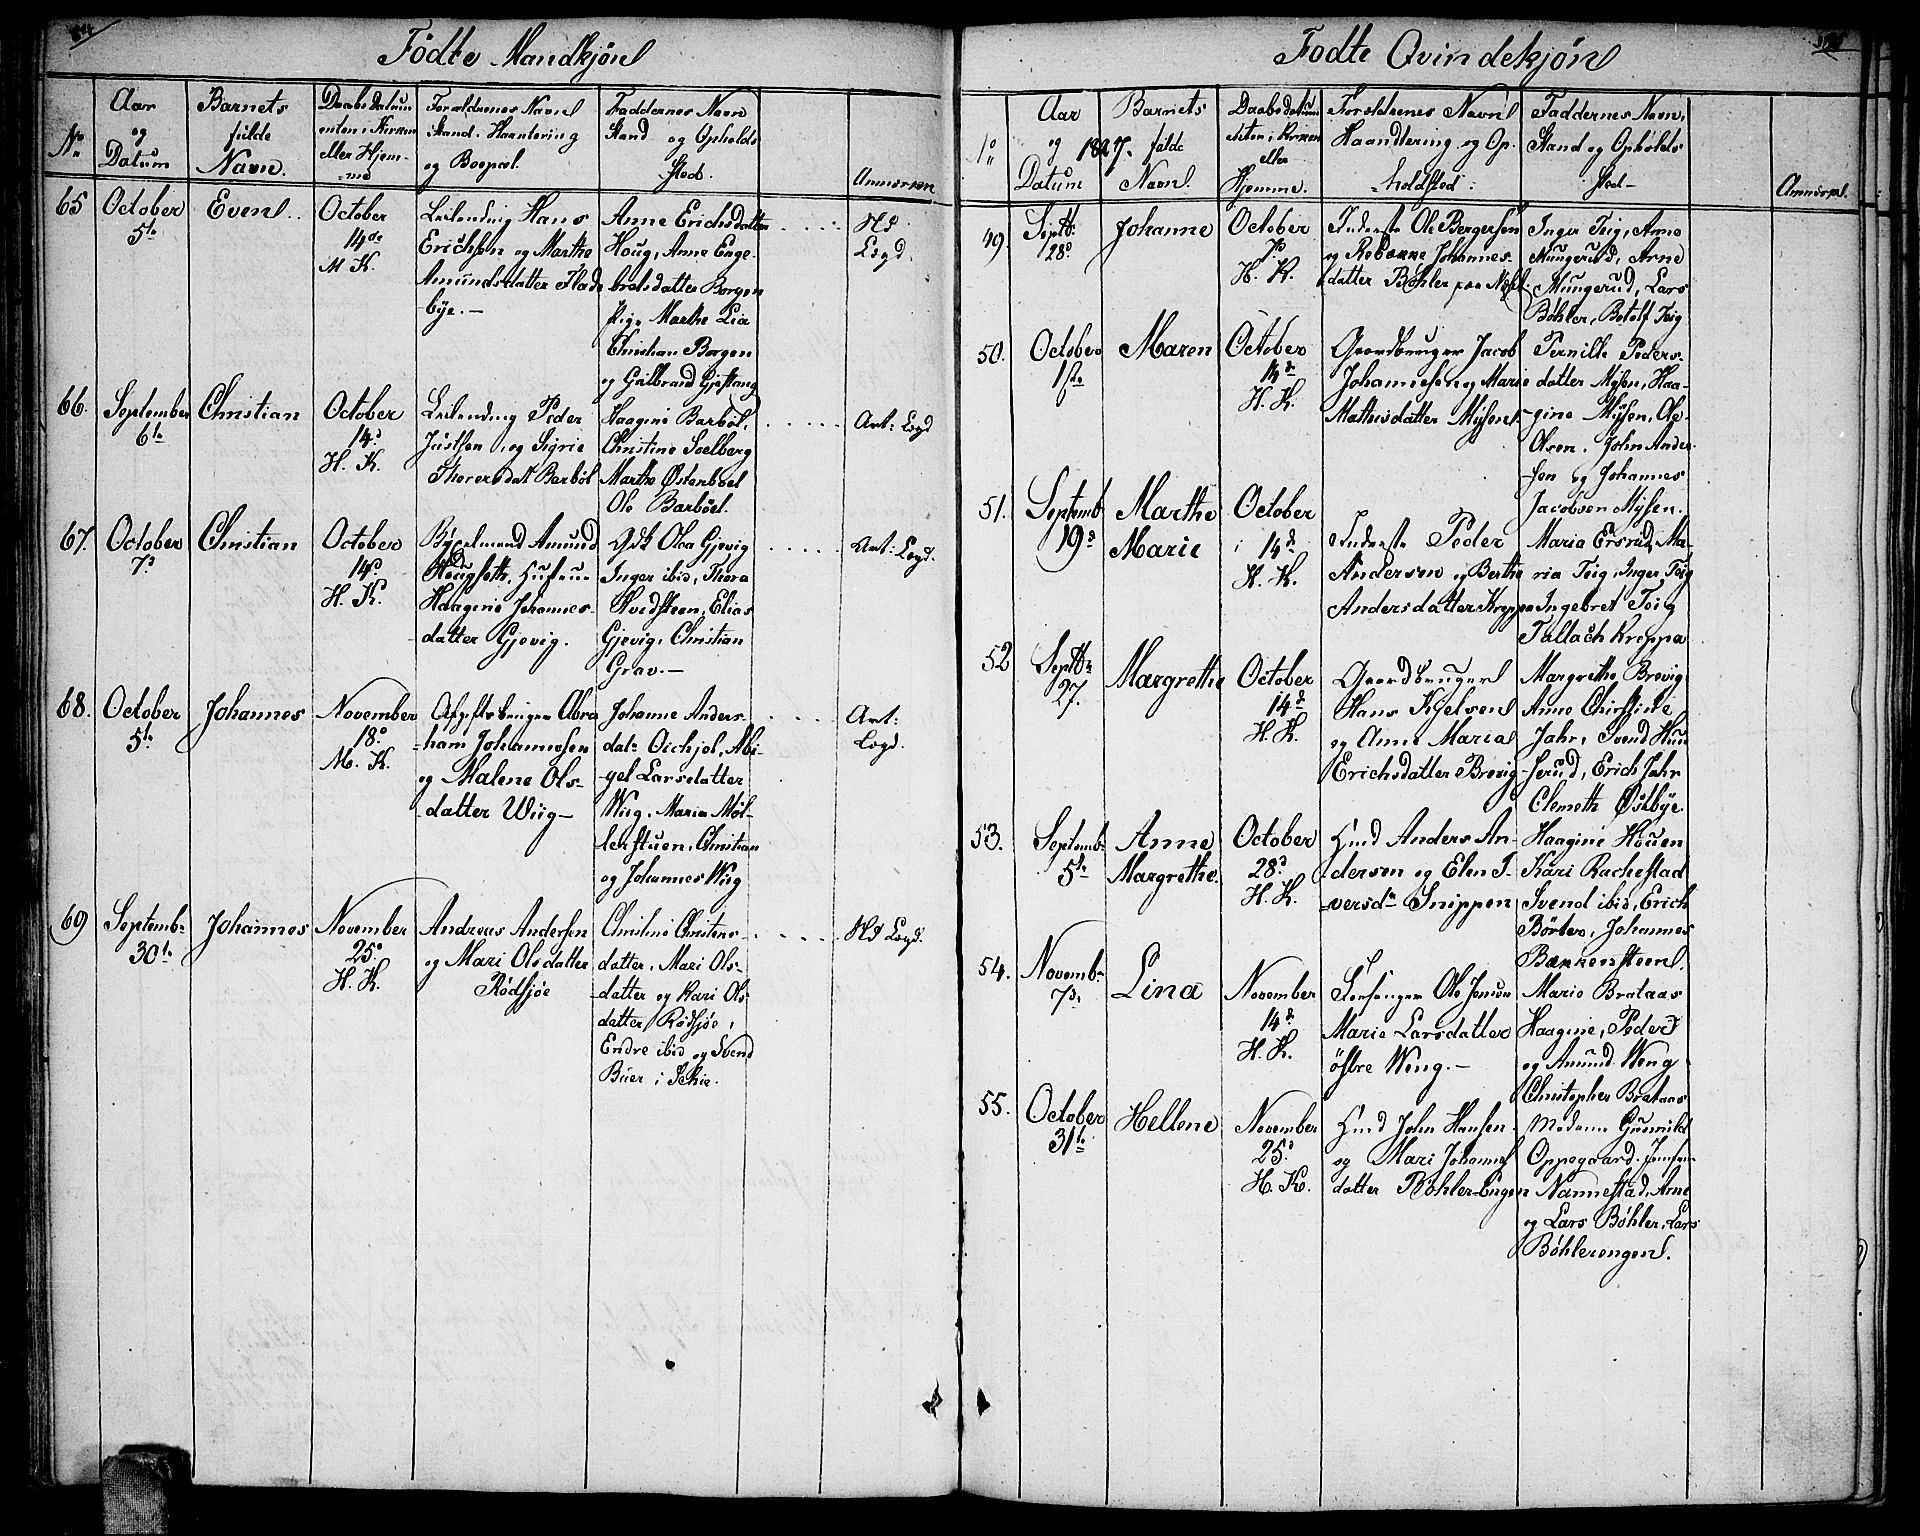 Födte Mandkjön
No
Aar og Datum
Barnets fulde Navn.
Daabs Datum enten i Kirken eller Hjemme
Forældrenes Navn Stand, Haantering og Boepæl.
Faddernes Navn Stand og Opholds Sted.
Anmærkn
65
October 5te
Even
October 14de M. K.
Leilending Hans
Erichsen og Marthe
Amundsdatter Flade
bye.
Anne Erichsdatter
Houg, Anne Enge-
bretsdatter Borgen
Pige Marthe Lia
Christian Borgen
og Gulbrand Gjestang
Lægd
66.
September 6te
Christian
October 14d H. K.
Leilending Peder
Justsen, og Sigrie
Thoresdat Barböl
Haagine Barböl,
Christine Soelberg
Marthe Østenboel
Ole Barböel.
Ant: Legd
67.
October 7d
Christian
October 14d H. K.
Amund
Hougseth, Hustrue
Haagine Johannes-
datter Gjevig.
Olea Gjevig
Inger ibid, Thora
Hvidsteen, Elias
Gjevig, Christian
Grav.
Ant: Legd.
68.
October 5te
Johannes
November 18d M. K.
Abra
ham Johannesen
og Malene Ols-
datter Wiig
Johanne Anders-
dat Oichjol, Abi
gel Larsdatter
Wiig, Maria Möl-
lerstuen, Christian
og Johannes Wiig
Ant: Legd.
69
Septemb. 30te
Johannes
November 25d H. K.
Andreas Andersen
og Mari Olsdatter
Rödsjöe
Christine Christens-
datter, Mari Ols-
datter og Kari Ols-
datter Rödsjöe,
Endre ibid og Svend
Büer i Schie.
Legd.
Fodte Qvindekjön
Aar og Datum
1827.
Barnets fulde Navn.
Daabs datum eller Hjemme.
Forældrenes Navn Haandtering og Op-
holdsted
Faddernes Navn,
Stand og Opholds
Sted
Anmærk.
49.
Septb: 28d
Johanne
October 7d H. K.
Inderste Ole Bergersen
og Rebecce Johannes-
datter Böhler
Inger Teig, Anne
Mungerud, Arne
Mungerud, Lars
Böhler, Botolf Teig
50.
October 1ste
Maren
October 14d H. K.
Gaardbruger Jacob
Johannesen og Marie
Mathisdatter Mysen
Pernille Peders-
datter Mysen, Haa-
gine Mysen, Ole
Olsen, John Ander-
sen og Johannes
Jacobsen Mysen.
51.
Septemb 19d
Marthe Marie
October 14d H. K.
Inderste Peder
Andersen og Berthe
Andersdatter Kreppa
Maria Ersrud, Ma-
ria Teig, Inger Teig
Ingebret Teig
Tallach Kreppa
52
Septb 27.
Margrethe
October 14d H. K.
Gaardbruger
Hans Kjelsen
og Anne Maria
Erichsdatter Brevig
Margrethe Brevig
Anne Christine
Jahr, Svend Huu
serud, Erich Jahr
Clemeth Østbye
53.
Septemb 5te
Anne Margrethe.
October 28d H. K.
Huusmd Anders An-
dersen og Elen I-
versd Snippen
Haagine Houen
Kari Rachestad
Svend ibid, Erich
Börter, Johannes
Bakkensteen.
54.
Novemb. 7d
Lina
November 14d H. K.
Ole Jensen
Marie Larsdatter
östre Weng.
Marie Brataas
Haagine, Peder
og Amund Weng
Christopher Brataas
55.
October 31te
Hellene
November 25d H. K.
Huusmd John Hansen
og Mari Johannes
datter Böhler Engen
Madame Gunnild
Oppegaard, Jomfrue
Nannestad, Arne
og Lars Böhler, Lars
Böhlerengen.